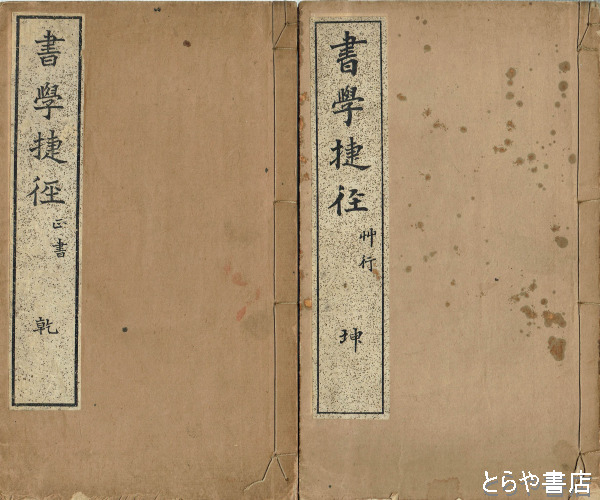 書學捷徑
正書
乾
書學捷徑
艸行
坤
とらや書店